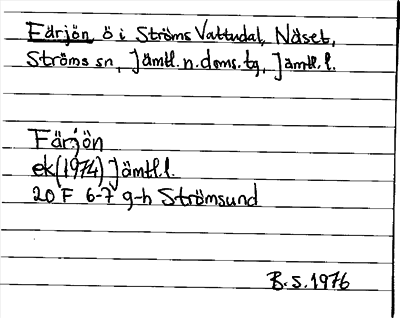 Färjön ö i Ströms Vattudal, Näset,
Ströms sn, Jämtl. n. doms. tg, Jämtl. l.
Färjön
ek (1974) Jämtl. l.
20 F 6-7 g-h Strömsund
B. S. 1976